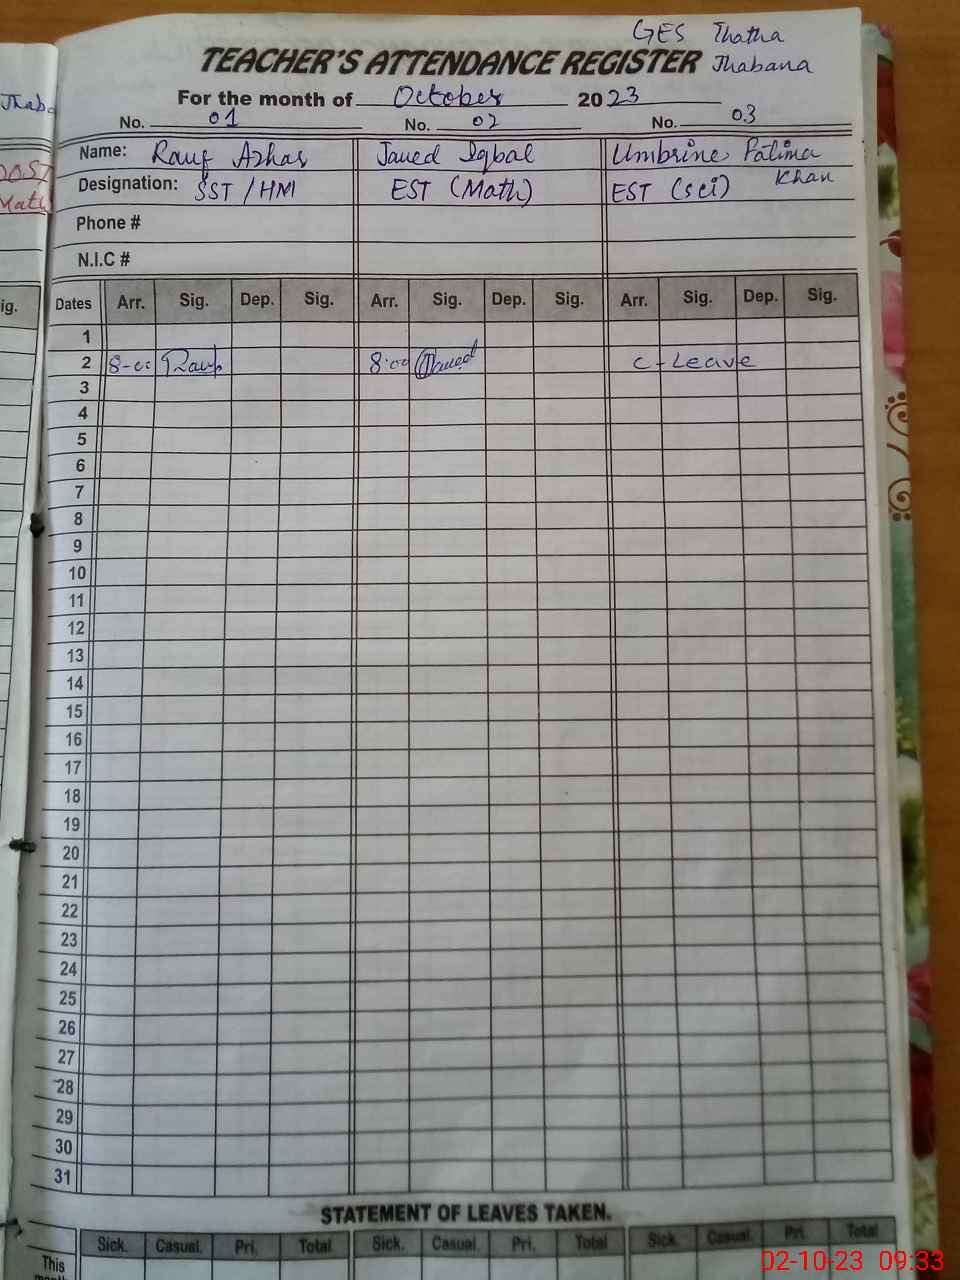 GES Thatha
TEACHER'S ATTENDANCE REGISTER Jhabana
For the month of October 2023
No. 01 No. 02 No. 03
Name: Rauf Azhar Javed Iqbal Umbrine Fatima
Designation: SST / HM EST (Math) EST (sci) Khan
Phone #
N.I.C #
Dates Arr. Sig. Dep. Sig. Arr. Sig. Dep. Sig. Arr. Sig. Dep. Sig.
1
2 8-00 Rauf 8:00 Javed C-Leave
3
4
5
6
7
8
9
10
11
12
13
14
15
16
17
18
19
20
21
22
23
24
25
26
27
28
29
30
31
STATEMENT OF LEAVES TAKEN.
Sick. Casual. Pri. Total Sick. Casual. Pri. Total Sick. Casual. Pri. Total
This
02-10-23 09:33